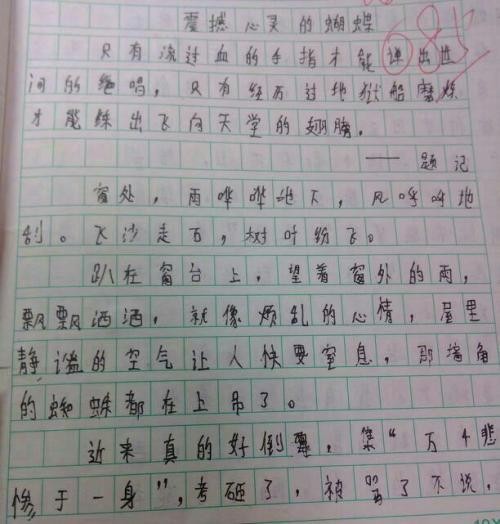 震撼心灵的蝴蝶
只有流过血的手指才能弹出世
间的绝唱，只有经历过地狱般磨炼
才能练出飞向天堂的翅膀。
——题记
窗处，雨哗哗地下，风呼呼地
刮。飞沙走石，树叶纷飞。
趴在窗台上，望着窗外的雨，
飘飘洒洒，就像烦乱的心情，屋里
静谧的空气让人快要窒息，那墙角
的蜘蛛都在上吊了。
近来真的好倒霉，集“万千悲
惨于一身”，考砸了，被骂了不说，